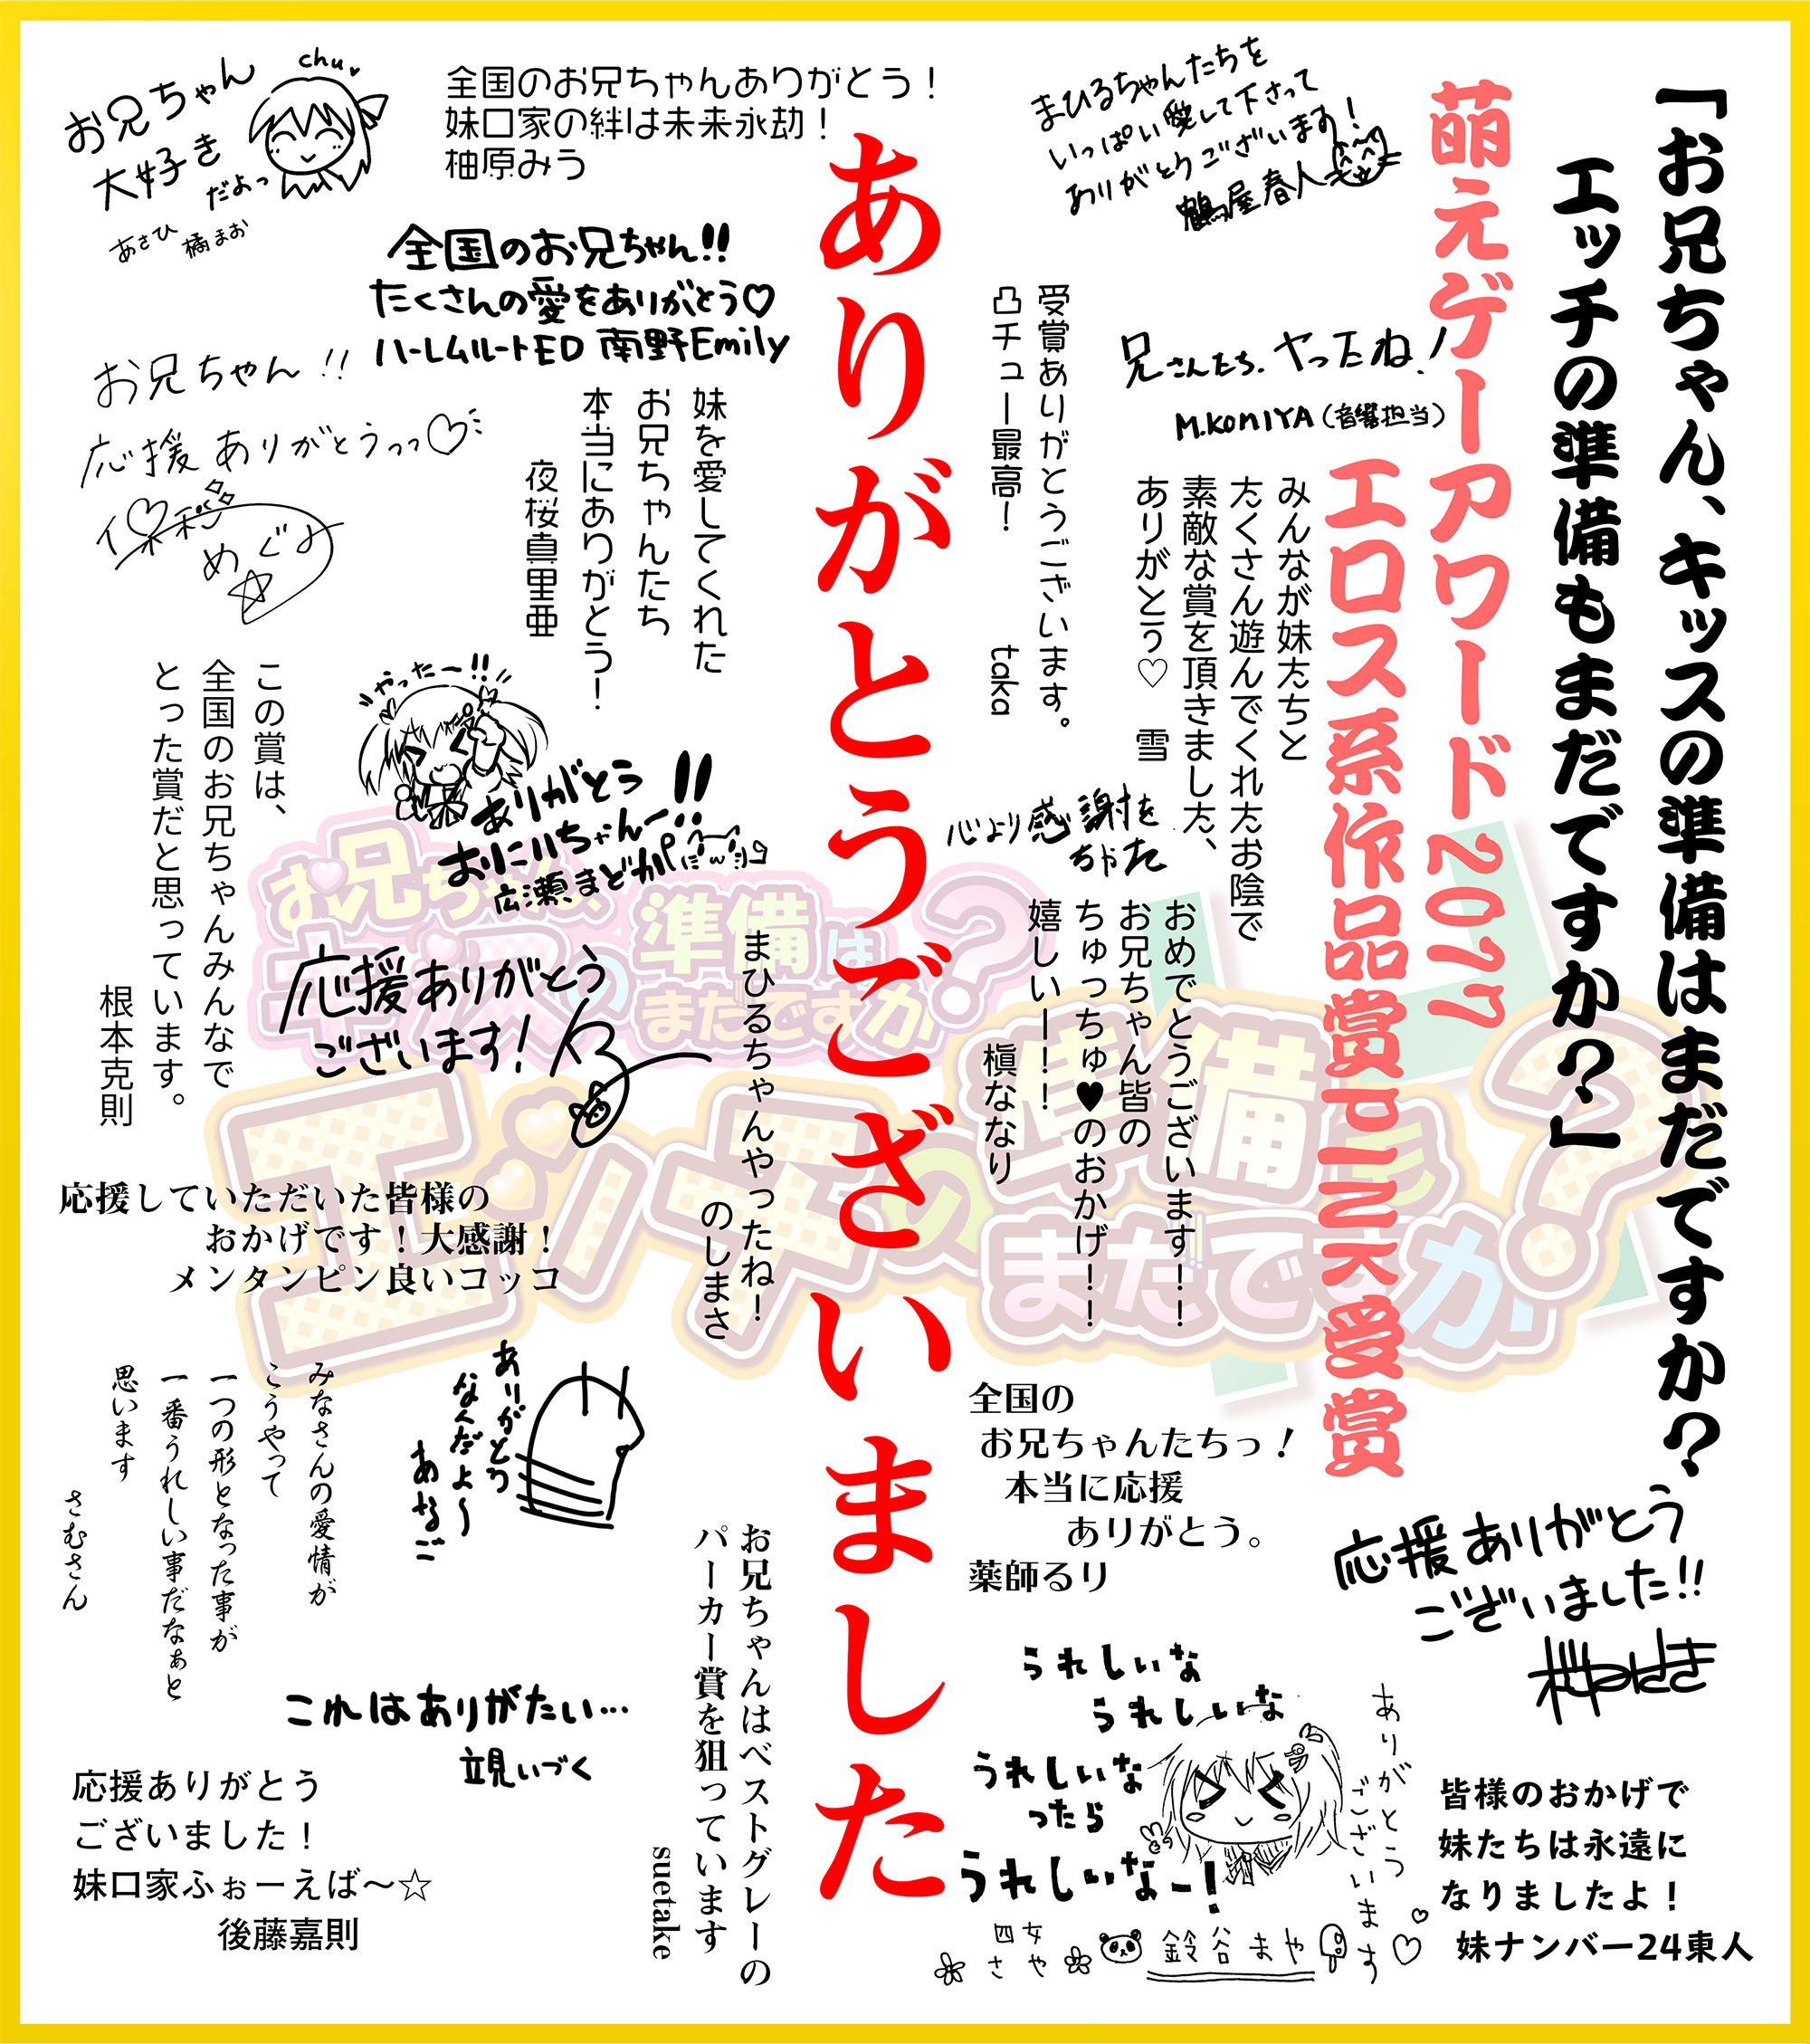 「お兄ちゃん、キッスの準備はまだですか？
エッチの準備もまだですか？」
萌えゲーアワード2077
エロス系作品賞PINK受賞
ありがとうございました
まひるちゃんたちを
いっぱい愛して下さって
ありがとうございます！
鶴屋春人
兄さんたち、ヤったね！
M.KOMIYA（音響担当）
受賞ありがとうございます。
凸チュー最高！　taka
みんなが妹たちと
たくさん遊んでくれたお陰で
素敵な賞を頂きました、
ありがとう♡　雪
心より感謝を
ちゃた
おめでとうございます！！
お兄ちゃん皆の
ちゅっちゅ♥のおかげ！！
嬉しいー！！
槇ななり
全国の
お兄ちゃんたちっ！
本当に応援
ありがとう。
薬師るり
応援ありがとう
ございました!!
うれしいな
うれしいな
うれしいな
ったら
うれしいなー！
ありがとう
ございます♡
四女
さや
鈴谷まや
皆様のおかげで
妹たちは永遠に
なりましたよ！
妹ナンバー24東人
お兄ちゃん
大好き
だよっ
chu♥
あさひ　橘まお
全国のお兄ちゃんありがとう！
妹口家の絆は未来永劫！
柚原みう
全国のお兄ちゃん!!
たくさんの愛をありがとう♡
ハーレムルートED 南野Emily
お兄ちゃん!!
応援ありがとうっっ♡
保科めぐみ☆
妹を愛してくれた
お兄ちゃんたち
本当にありがとう！
夜桜真里亜
やったー!!
ありがとう
おにいちゃんー!!
広瀬まどか
この賞は、
全国のお兄ちゃんみんなで
とった賞だと思っています。
根本克則
お兄ちゃん、
キスの準備は
まだですか？
エッチの準備も
まだですか？
応援ありがとう
ございます！
まひるちゃんやったね！
のしまさ
応援していただいた皆様の
おかげです！大感謝！
メンタンピン良いコッコ
みなさんの愛情が
こうやって
一つの形となった事が
一番うれしい事だなぁと
思います
さむさん
ありがとう
なんだよ〜
あなご
お兄ちゃんはベストグレーの
パーカー賞を狙っています
suetake
これはありがたい…
覗いづく
応援ありがとう
ございました！
妹口家ふぉーえば〜☆
後藤嘉則